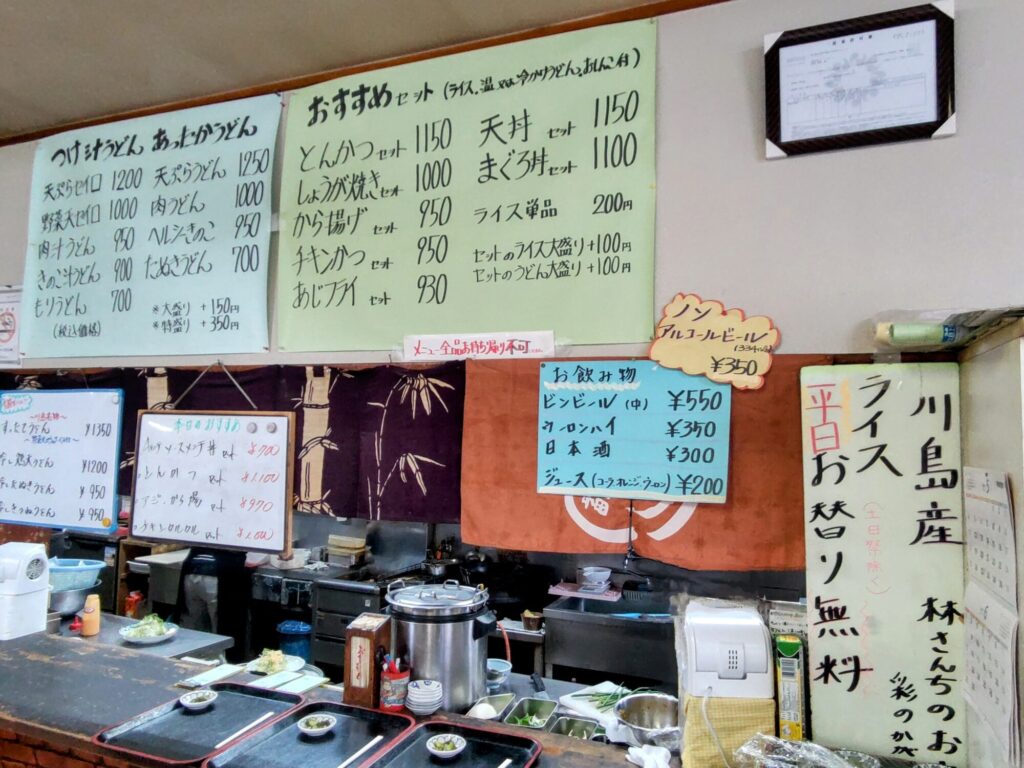 つけ汁うどん あったかうどん
天ぷらセイロ 1200 天ぷらうどん 1250
野菜天セイロ 1000 肉うどん 1000
肉汁うどん 950 ヘルシーきのこ 950
きのこ汁うどん 900 たぬきうどん 700
もりうどん 700
(税込価格)
※大盛り +150円
※特盛り +350円
おすすめセット (ライス、温又は冷かけうどん、おしんこ付)
とんかつセット 1150 天丼セット 1150
しょうが焼きセット 1000 まぐろ丼セット 1100
から揚げセット 950 ライス単品 200円
チキンかつセット 950 セットのライス大盛り+100円
あじフライセット 930 セットのうどん大盛り+100円
メニュー全品お持ち帰り不可
ノン
アルコールビール
¥350
お飲み物
ビンビール(中) ¥550
ウーロンハイ ¥350
日本酒 ¥300
ジュース(コーラ、オレンジ、ウーロン) ¥200
すったてうどん ¥1350
¥1200
したぬきうどん ¥950
¥950
本日のおすすめ
¥1,100
¥970
チキンカツカレー セット
川島産 林さんちのお
彩のかが
ライス
平日お替り無料
(土日祭除く)